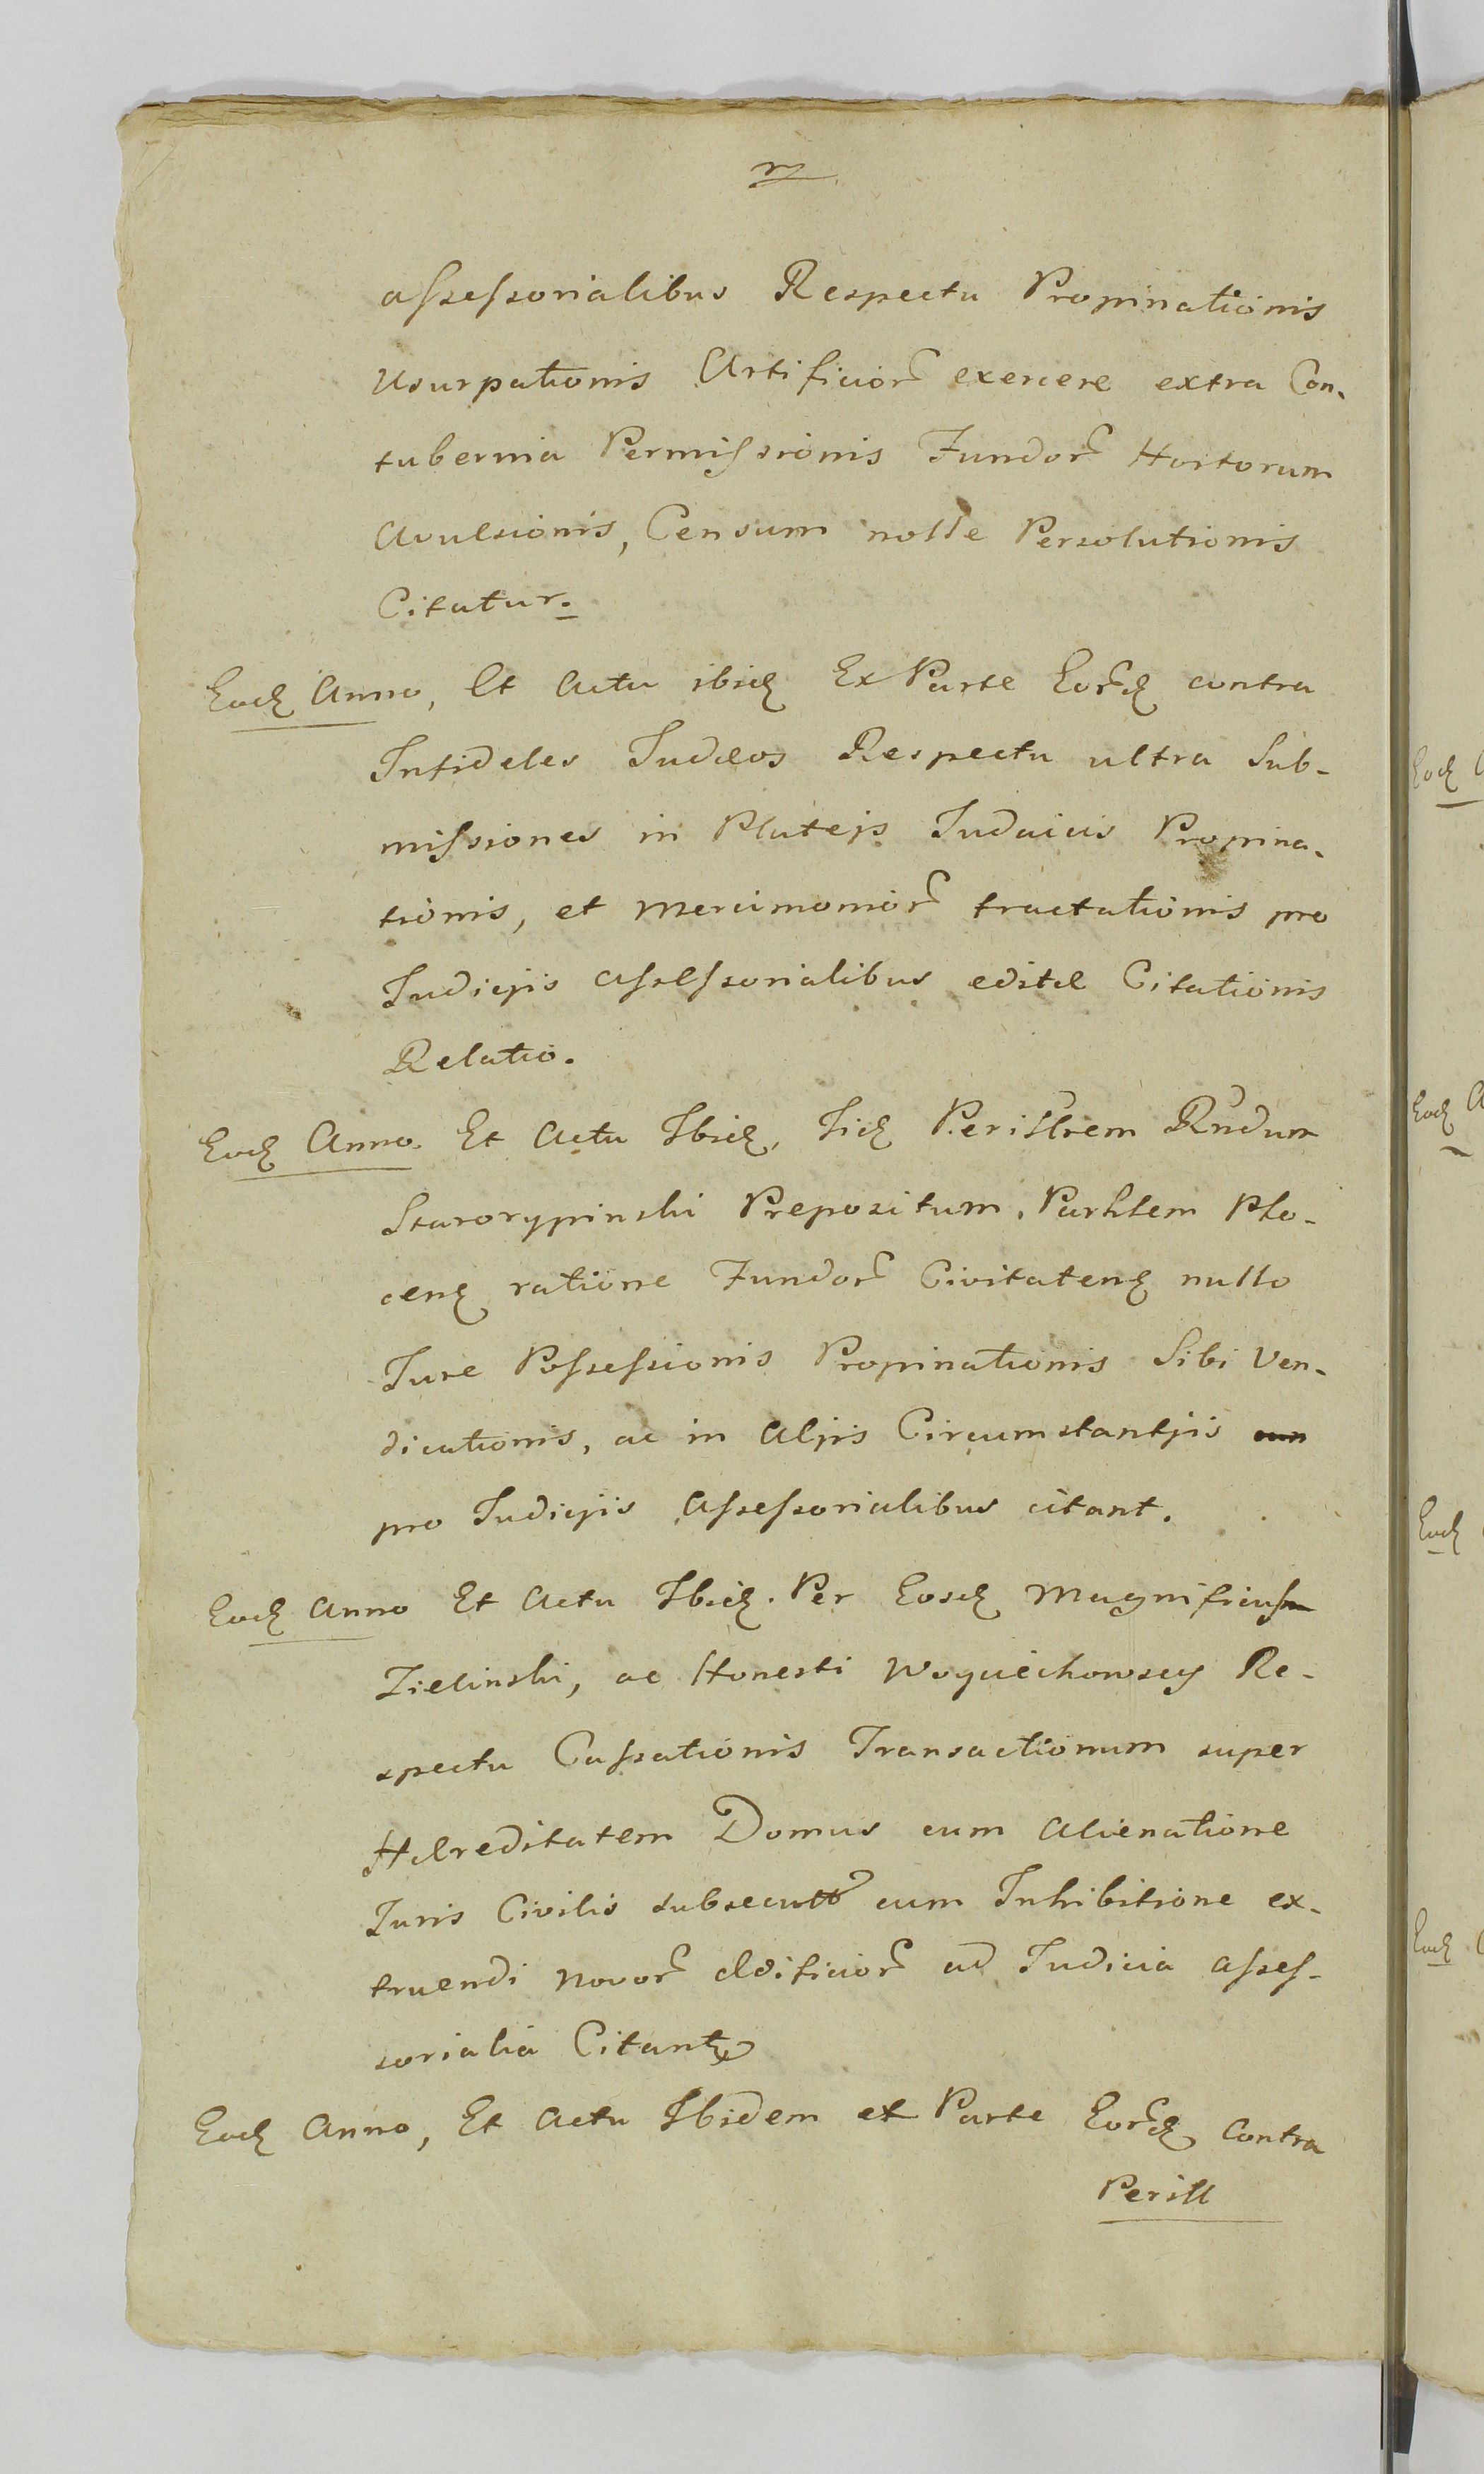 assessorialibus Respectu Propinationis
Usurpationis Artificior exercere extra Con-
tubernia Permissionis Fundor Hortorum
Avulsionis, Censum nolle Persolutionis
Citatur.
Eod Anno, Et Actu ibid Ex Parte Eord contra
Infideles Judæos Respectu ultra Sub-
missiones in Plateis Judaicis Propina-
tionis, et Mercimonior tractationis pro
Judicijs Assessorialibus editæ Citationis
Relatio.
Eod Anno. Et Actu Ibid, Iid Perillrem Rndum
Starorypinski Prepositum, Parhlem Plo-
cen ratione Fundor Civitaten nullo
Jure Possessionis Propinationis Sibi Ven-
dicationis, ac in Alijs Circumstantjis
pro Judicijs Assessorialibus citant.
Eod Anno Et Actu Ibid. Per Eosd Magnificus
Zielinski, ac Honesti Woyciechowscy Re-
spectu Cassationis Transactionum super
Hæreditatem Domus cum Alienatione
Juris Civilis subsecutt cum Inhibitione ex-
truendi Novor Ædificior ad Judicia Asses-
sorialia Citant
Eod Anno, Et Actu Ibidem ex Parte Eord Contra
Perill